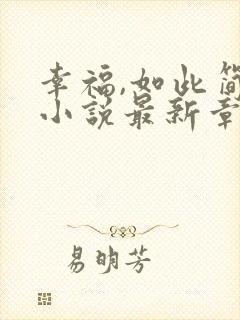 幸福,如此简
小说最新章
易明芳